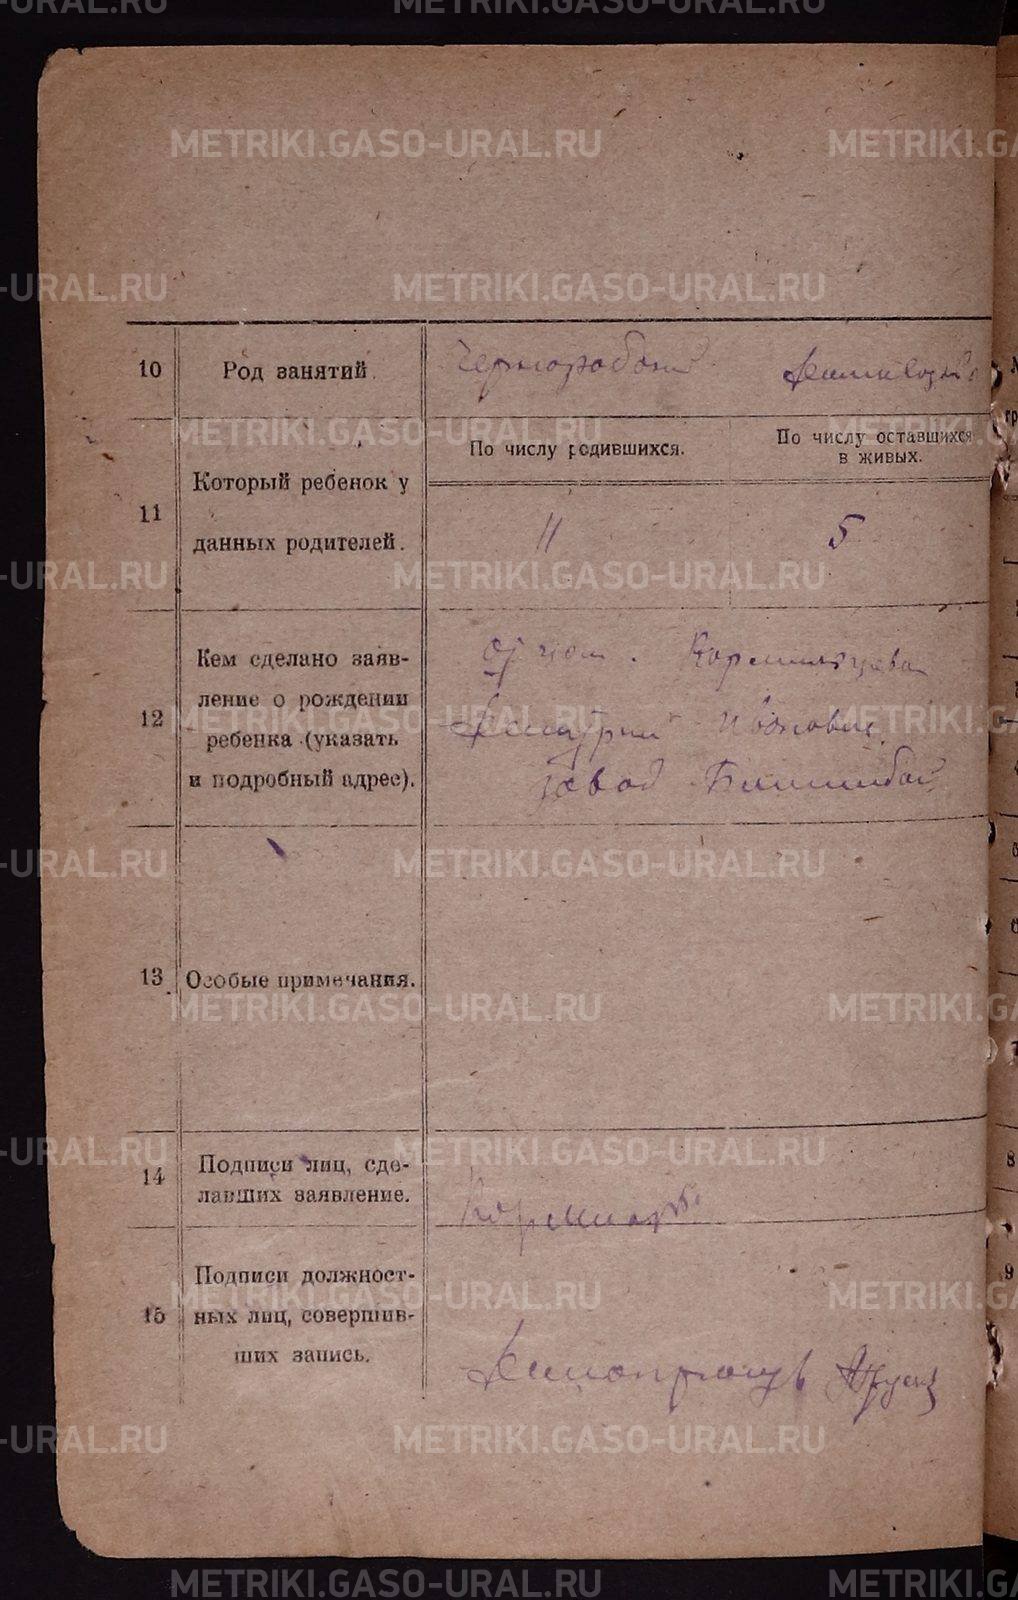 METRIKI.GASO-URAL.RU
10 Род занятий. Чернорабочий
По числу родившихся. По числу оставшихся в живых.
11 Который ребенок у данных родителей. 11 5
12 Кем сделано заяв-
ление о рождении
ребенка (указать
и подробный адрес).
отцом. Кормильцева
Дмитрий
завод Билимбай
13 Особые примечания.
14 Подписи лиц, сде-
лавших заявление.
15 Подписи должност-
ных лиц, совершив-
ших запись.